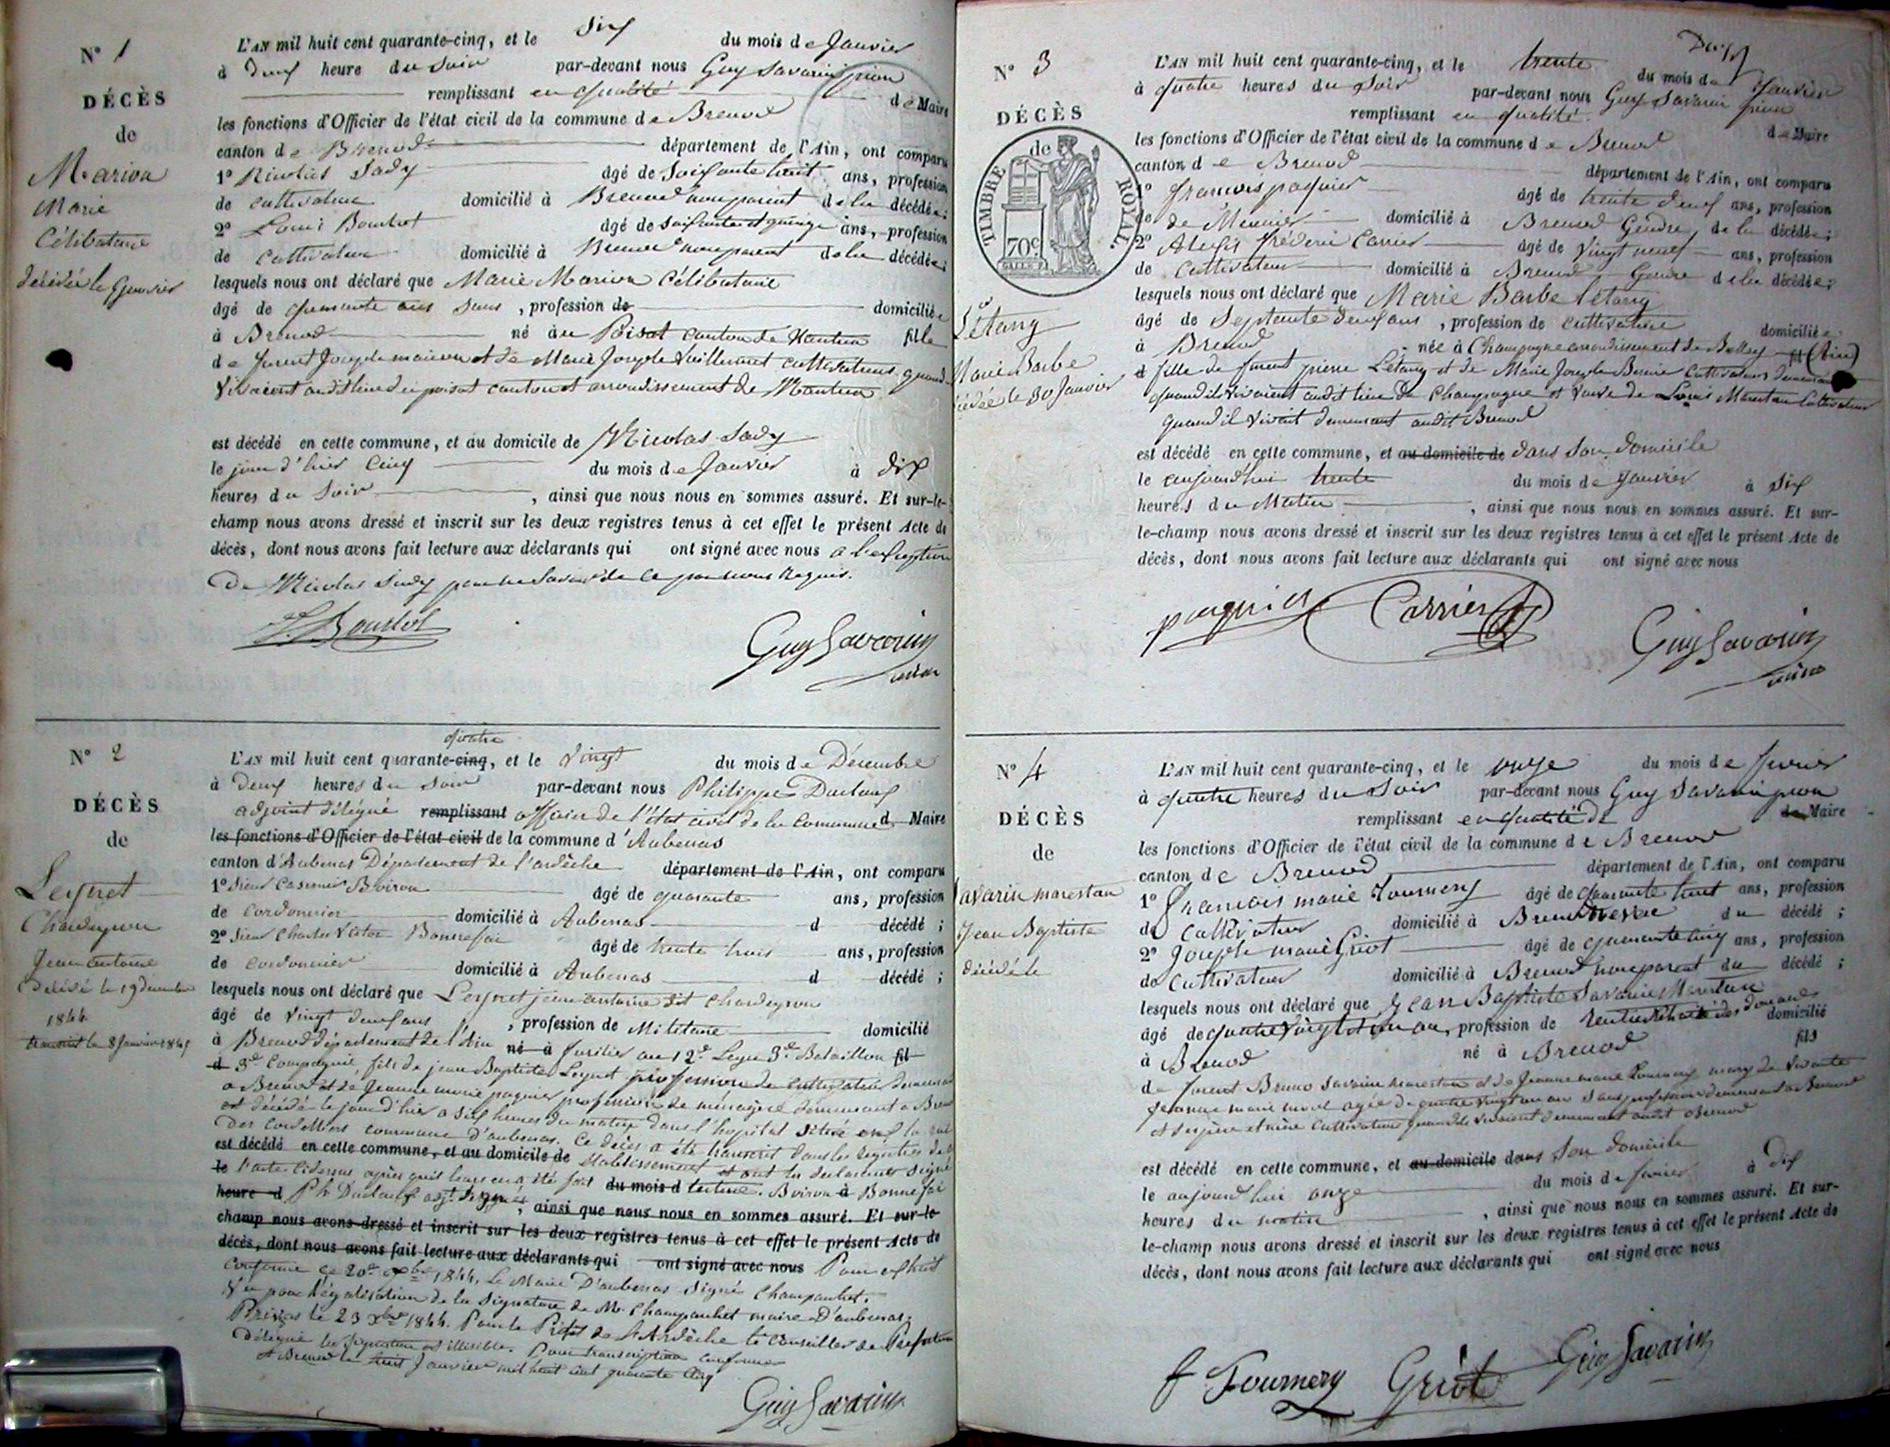 N° 1
DÉCÈS
de
Marion
Marie
Célibataire
décédée le 5 janvier
L'AN mil huit cent quarante-cinq, et le six du mois de Janvier
à deux heure du soir par-devant nous Guy Savarin pion
remplissant en qualité de Maire
les fonctions d'Officier de l'état civil de la commune de Brenod
canton de Brenod département de l'Ain, ont comparu
1° Nicolas Sady âgé de soixante huit ans, profession
de cultivateur domicilié à Brenod non parent de la décédée;
2° Louis Bourbot âgé de soixante et quinze ans, profession
de cultivateur domicilié à Brenod non parent de la décédée;
lesquels nous ont déclaré que Marie Marion Célibataire
âgé de quarante ans sans, profession de domiciliée
à Brenod né au Poisat canton de Nantua fille
de furent Joseph marion et de Marie Josephe Vuillermet cultivateurs quand
vivaient audit lieu du poisat canton et arrondissement de Nantua
est décédé en cette commune, et au domicile de Nicolas Sady
le jour d'hier cinq du mois de Janvier à dix
heures du soir, ainsi que nous nous en sommes assuré. Et sur-le-
champ nous avons dressé et inscrit sur les deux registres tenus à cet effet le présent Acte de
décès, dont nous avons fait lecture aux déclarants qui ont signé avec nous à l'exception
de Nicolas Sady pour ne savoir de ce par nous requis.
Guy Savarin
N° 2
DÉCÈS
de
Leynet
Chardeyron
Jean antoine
Décédé le 19 décembre
1844
transcrit le 8 Janvier 1845
quatre
L'AN mil huit cent quarante-cinq, et le vingt du mois de Décembre
à deux heures du soir par-devant nous Philippe
adjoint délégué remplissant officier de l'état civil de la commune d Maire
les fonctions d'Officier de l'état civil de la commune d'Aubenas
canton d'Aubenas Département de l'ardèche département de l'Ain, ont comparu
1° Sieur Casimir Boiron âgé de quarante ans, profession
de cordonnier domicilié à Aubenas d décédé;
2° Sieur Charles Victor Bonnefoi âgé de trente trois ans, profession
de cordonnier domicilié à Aubenas d décédé;
lesquels nous ont déclaré que Leynet jean antoine dit chardeyron
âgé de vingt deux ans, profession de Militaire domicilié
à Brenod département de l'Ain né à fusilier au 12e Léger 3e Bataillon fil
d 3e Compagnie, fils de jean Baptiste Leynet profession de cultivateur demeurant
a Brenod et de Jeanne marie paquier profession de ménagère demeurant a Brenod
est décédé le jour d'hier a six heures du matin dans l'hopital situé
des cordeliers commune d'aubenas. Ce décès a été transcrit dans les registres de
est décédé en cette commune, et au domicile de établissement et ont les déclarants signé
le l'acte ci dessus après qu'il leur en a été fait du mois d lecture. Boiron à Bonnefoi
heure d Ph. adjt signés, ainsi que nous nous en sommes assuré. Et sur-le-
champ nous avons dressé et inscrit sur les deux registres tenus à cet effet le présent Acte de
décès, dont nous avons fait lecture aux déclarants qui ont signé avec nous Pour extrait
conforme ce 20e xbre 1844, Le Maire D'aubenas signé Champanhet.
Vu pour légalisation de la signature de Mr Champanhet maire D'aubenas;
Privas le 23 xbre 1844. Pour le Préfet de l'Ardèche le Conseiller de Préfecture
Délégué la signature est illisible. Pour transcription conforme
A Brenod le huit Janvier mil huit cent quarante cinq
Guy Savarin
Deux
N° 3
DÉCÈS
de
TIMBRE ROYAL
70c
Létang
Marie Barbe
décédée le 30 Janvier
L'AN mil huit cent quarante-cinq, et le trente du mois de Janvier
à quatre heures du soir par-devant nous Guy Savarin pion
remplissant en qualité de Maire
les fonctions d'Officier de l'état civil de la commune de Brenod
canton de Brenod département de l'Ain, ont comparu
1° françois paquier âgé de trente deux ans, profession
de de Meunier domicilié à Brenod Gendre de la décédée;
2° Alexis frédéric Carrier âgé de vingt neuf ans, profession
de cultivateur domicilié à Brenod Gendre de la décédée;
lesquels nous ont déclaré que Marie Barbe Létang
âgé de septante deux ans, profession de cultivatrice domiciliée
à Brenod née à Champagne arrondissement de Belley fil (Ain)
d fille de furent pierre Létang et de Marie Josephe Bernier cultivateurs demeurant
quand ils vivaient audit lieu de Champagne et veuve de Louis Marestan cultivateur
quand il vivait demeurant audit Brenod
est décédé en cette commune, et au domicile de dans son domicile
le aujourd'hui trente du mois de Janvier à six
heures du Matin, ainsi que nous nous en sommes assuré. Et sur-
le-champ nous avons dressé et inscrit sur les deux registres tenus à cet effet le présent Acte de
décès, dont nous avons fait lecture aux déclarants qui ont signé avec nous
paquier Carrier
Guy Savarin
N° 4
DÉCÈS
de
Savarin marestan
Jean Baptiste
décédé le
L'AN mil huit cent quarante-cinq, et le onze du mois de fevrier
à quatre heures du soir par-devant nous Guy Savarin pion
remplissant en qualité de de Maire
les fonctions d'Officier de l'état civil de la commune de Brenod
canton de Brenod département de l'Ain, ont comparu
1° François marie Tournery âgé de quarante huit ans, profession
de cultivateur domicilié à Brenod neveu du décédé;
2° Joseph marie Griot âgé de quarante cinq ans, profession
de cultivateur domicilié à Brenod non parent du décédé;
lesquels nous ont déclaré que Jean Baptiste Savarin Marestan
âgé de quatre vingt un an, profession de rentier retraité des douanes domicilié
à Brenod né à Brenod fils
de furent Bruno Savarin marestan et de Jeanne marie Tournery mary de vivante
Jeanne marie morel agée de quatre vingt un ans sans profession demeurant a Brenod
et ses père et mère cultivateurs quand ils vivaient demeurant audit Brenod
est décédé en cette commune, et au domicile dans son domicile
le aujourd'hui onze du mois de fevrier à dix
heures du matin, ainsi que nous nous en sommes assuré. Et sur-
le-champ nous avons dressé et inscrit sur les deux registres tenus à cet effet le présent Acte de
décès, dont nous avons fait lecture aux déclarants qui ont signé avec nous
f Tournery Griot Guy Savarin